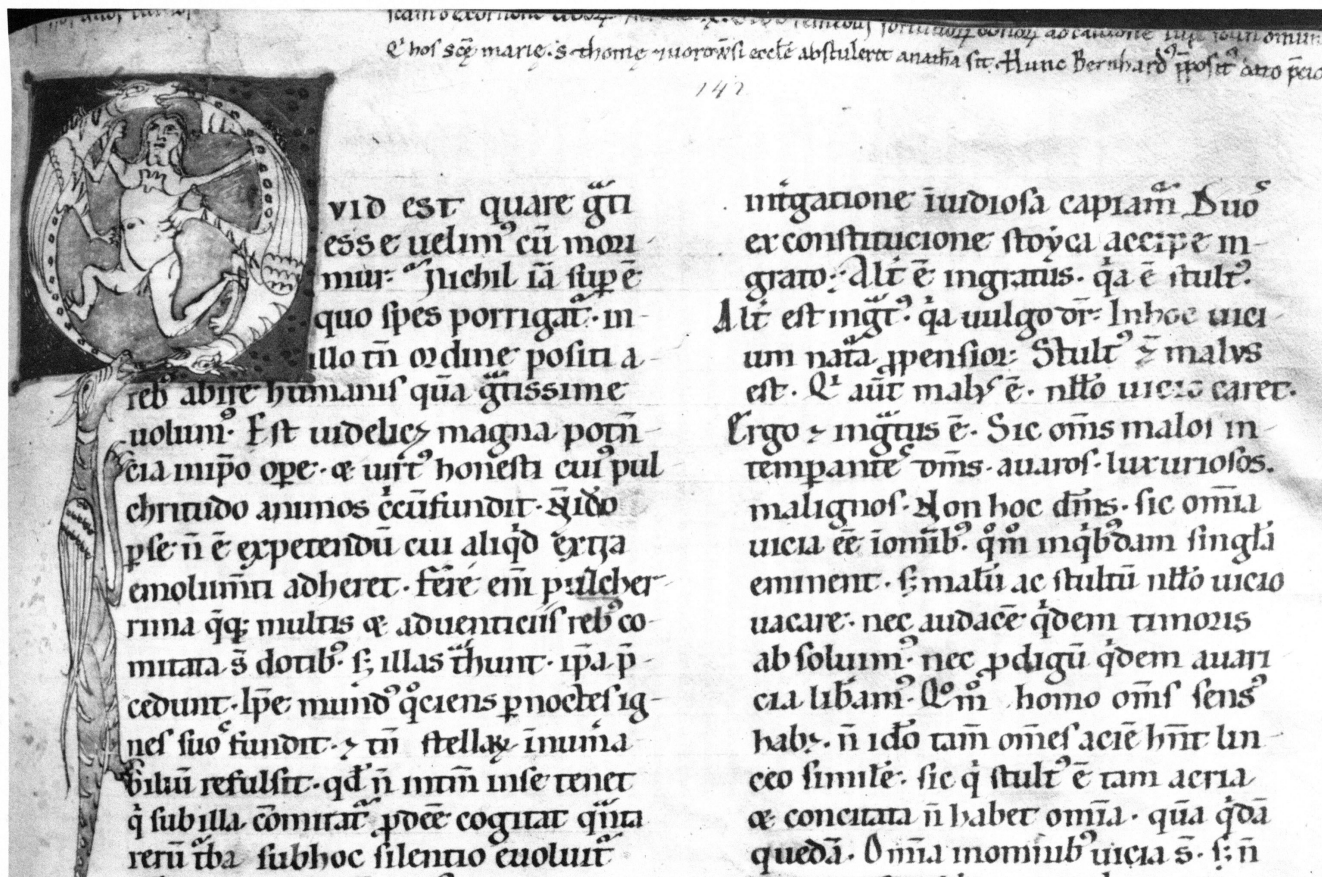 Q̇ hos scę marie · s · thomę ⁊ uorow̄si eccłe abstulerit anath̄a sit. Hunc Bernhard᾽ p̄posit᾽
147
QVID EST quare gͣti
esse uelim᾽ cū mori
mur· Nichil iā sup ē
quo spes porrigat᷑ · in
illo tn̄ ordine positi a-
reb᾽ abire humanis quā gͣtissime
uolum᾽. Est uidelicꝫ magna potn̄
cia in ip̄o ope · & uirt᾽ honesti cui᾽ pul
chritudo animos c̄cūfundit · N̄ ido
ꝑ se n̄ ē expetendū cui aliqͥd extͣa
emolum̄ti adheret · fere ēm pulcher
rima q̄qꝫ multis & aduenticiis reb᾽ co-
mitata s̄ dotib᾽ · sꝫ illas tͣhunt · ip̄a p̄-
cedunt · Ip̄e mund᾽ qͦciens ꝑ noctes ig-
nes suos fundit · ⁊ tn̄ stellaꝝ īnum̄a-
biliū refulsit · qd̄ n̄ intm̄ in se tenet
qͥ sub illa cōmitat᷑ ꝓdcē cogitat qͣnta
rerū tͬba sub hoc silentio euoluit᷑
mit̾gatione īuidiosa capiam᷑ Duo
ex constitucione stoyca accipe in-
grato · Alt̾ ē ingratus · qͥa ē stult᾽·
Alt̾ est ingͣt᾽· qͥa uulgo dr̄ · In hoc uici
um nat̾a ꝓpensior · Stult᾽ ⁊ malvs
est · Qͥ aūt mal᾽ ē · nłło uicio caret·
Ergo ⁊ ingͣtus ē · Sic om̄s malos in-
tempante᷒ dm̄s · auaros · luxuriosos·
malignos · Non hoc dm̄s · sic omīa
uicia eē īomīb᾽ · qͦm̄ in qͥb᾽dam singłi
eminent · sꝫ malū ac stultū nłło uicio
uacare · nec audacē qͥdem timoris
absoluim᾽ · nec ꝓdigū qͥdem auari
cia libam᾽ · Qͦm̄ homo om̄s sens᾽
habꝫ · n̄ idō tam̄ om̄es aciē hn̄t lin-
ceo simile · sic qͥ stult᾽ ē tam acria
& concitata n̄ habet omīa · quā qͥdā
quedā · Omīa inomnib᾽ uicia s̄ · sꝫ n̄